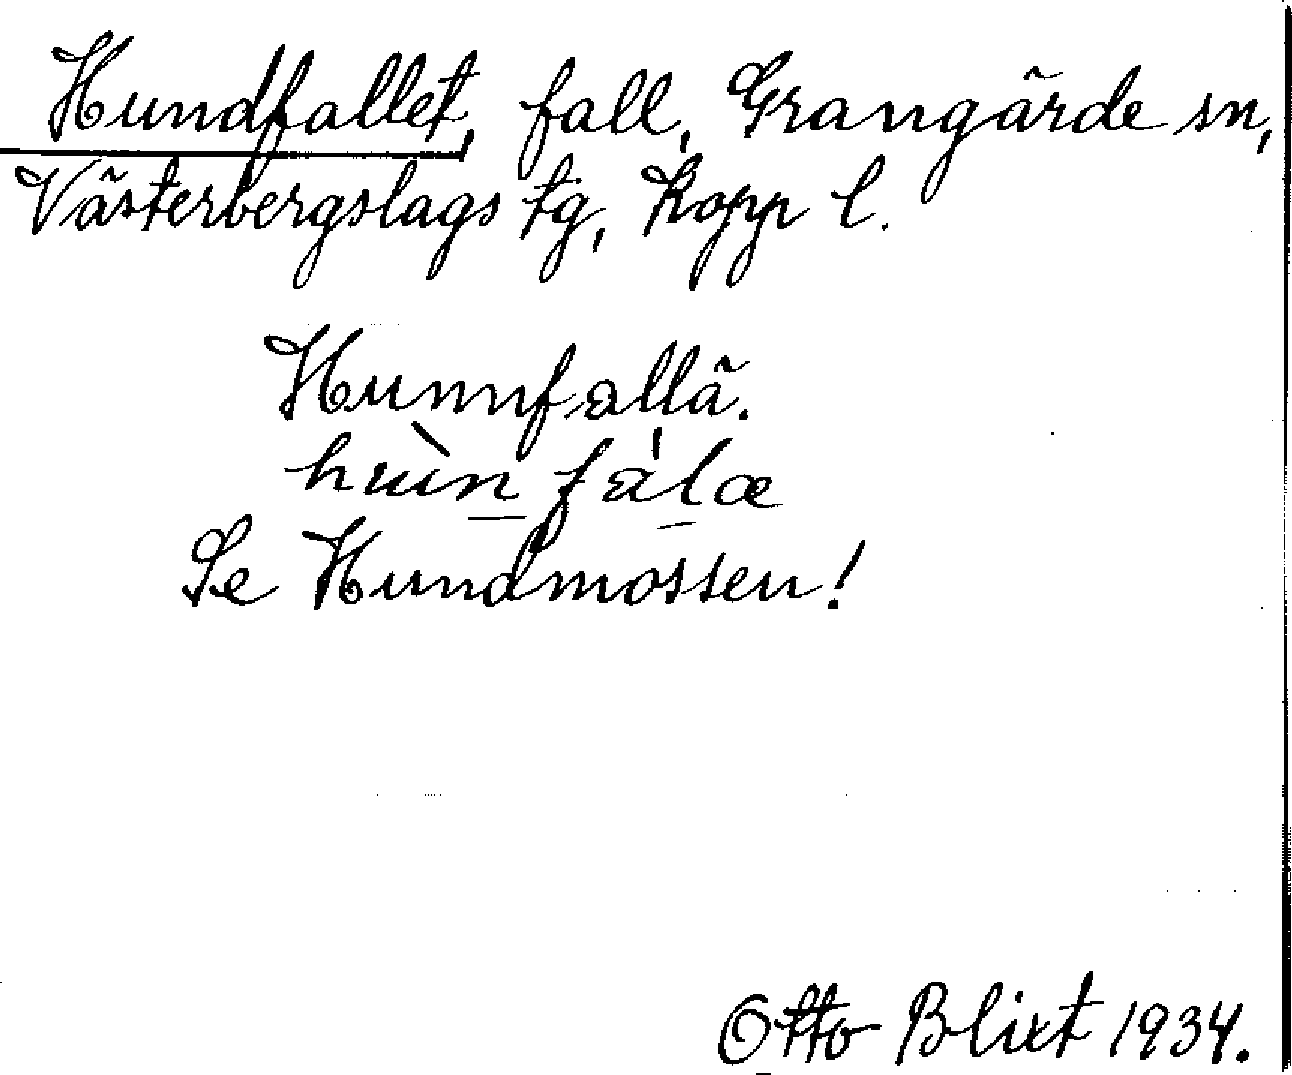 Hundfallet, fall, Grangärde sn,
Västerbergslags tg, Kopp l.
Hunnfallä.
hùn fálæ
Se Hundmossen!
Otto Blixt 1934.